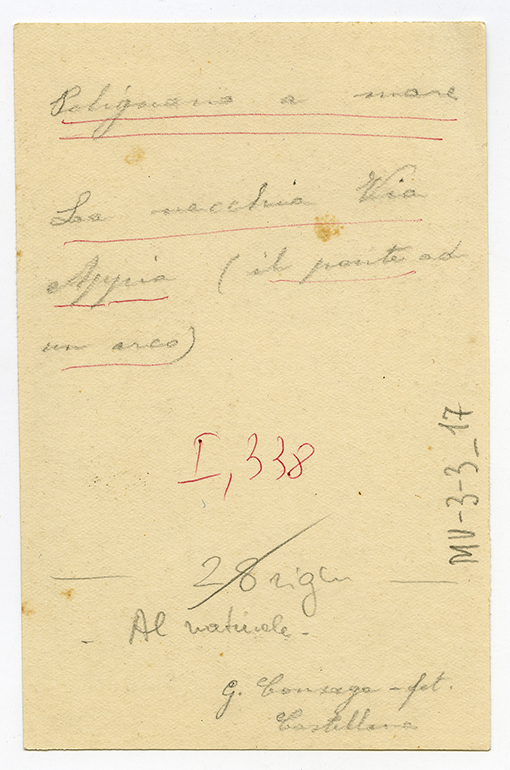 Polignano a mare
La vecchia Via
Appia (il ponte ad
un arco)
I, 338
MV-3-3_17
28 righe
Al naturale.
G. Consega - fot.
Castellana